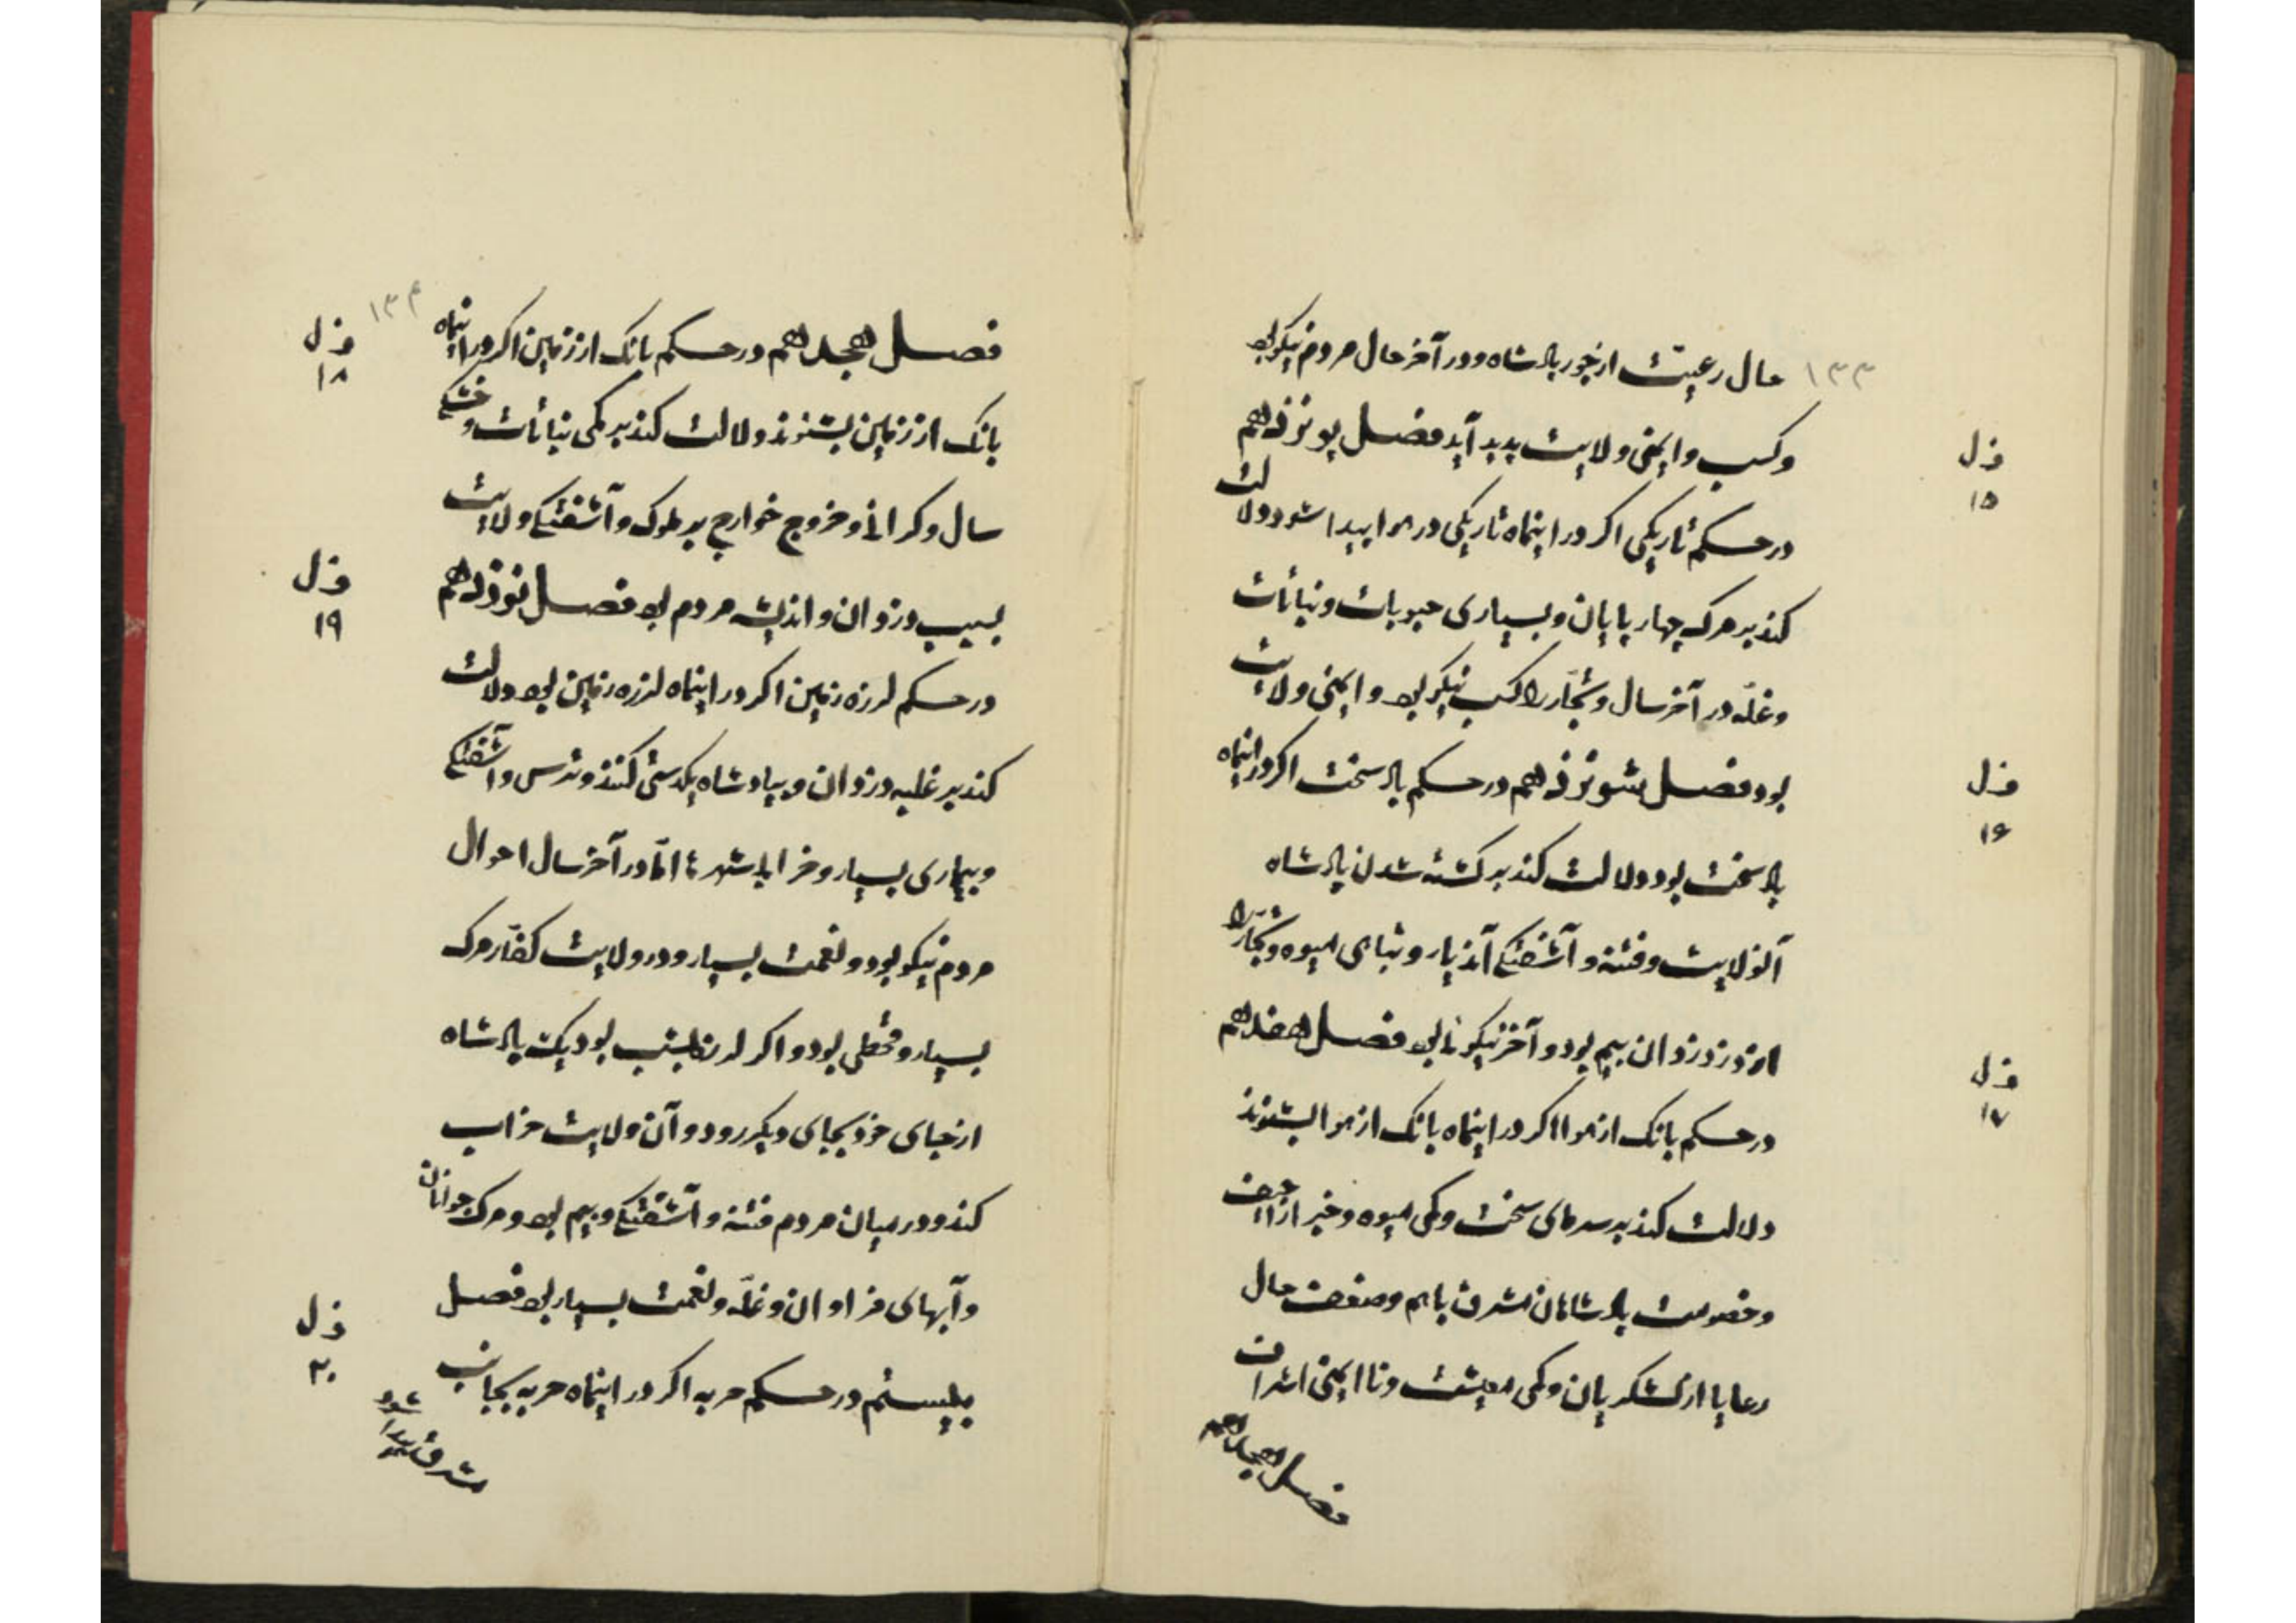 ۱۳۳
حال رعیّت از جور پادشاه و در آخر حال مردم نیکو بود
و کسب و ایمنی ولایت پدید آید فصل پونزدهم
ف ل
۱۵
در حکم تاریکی اکر در اینماه تاریکی در هوا پیدا شود دلالت
کند بر مرک چهار پایان و بسیاری حبوبات و نباتات
و غلّه در آخر سال و تجّار را کسب نیکو بود و ایمنی ولایت
بود فصل شونزدهم در حکم باد سخت اکر در اینماه
ف ل
۱۶
باد سخت بود دلالت کند بر کشته شدن پادشاه
آنولایت و فتنه و آشفتکی آندیار و تباهی میوه و تجّار را
از دزد دزدان بیم بود و آخر نیکوئی بود فصل هفدهم
ف ل
۱۷
در حکم بانک از هوا اکر در اینماه بانک از هوا بشنوند
دلالت کند بر سرمای سخت و کمی میوه و خبر اراجیف
و خصومت پادشاهان مشرق باهم و ضعف حال
رعایا از لشکریان و کمی معیشت و نا ایمنی اشراف
فصل هجدهم
۱۳۴
فصل هجدهم در حکم بانک از زمین اکر در اینماه
ف ل
۱۸
بانک از زمین بشنوند دلالت کند بر کمی نباتات و خشکی
سال و کرانی و خروج خوارج بر ملوک و آشفتکی ولایت
بسبب دزدان و اندیشه مردم بود فصل نوزدهم
ف ل
۱۹
در حکم لرزه زمین اکر در اینماه لرزه زمین بود دلالت
کند بر غلبه دزدان و بپادشاه بکدستی کنند و ترس و آشفتکی
و بیماری بسیار و خرابی شهر ها امّا در آخر سال احوال
مردم نیکو بود و نعمت بسیار و در ولایت کفّار مرک
بسیار و قحطی بود و اکر لرزه بشب بود یک پادشاه
از جای خود بجای دیکر رود و آن ولایت خراب
کند و در میان مردم فتنه و آشفتکی و بیم بود و مرک جوانان
و آبهای فراوان و غلّه و نعمت بسیار بود فصل
ف ل
۲۰
بیستم در حکم حربه اکر در اینماه حربه بجانب
مشرق پیدا شود